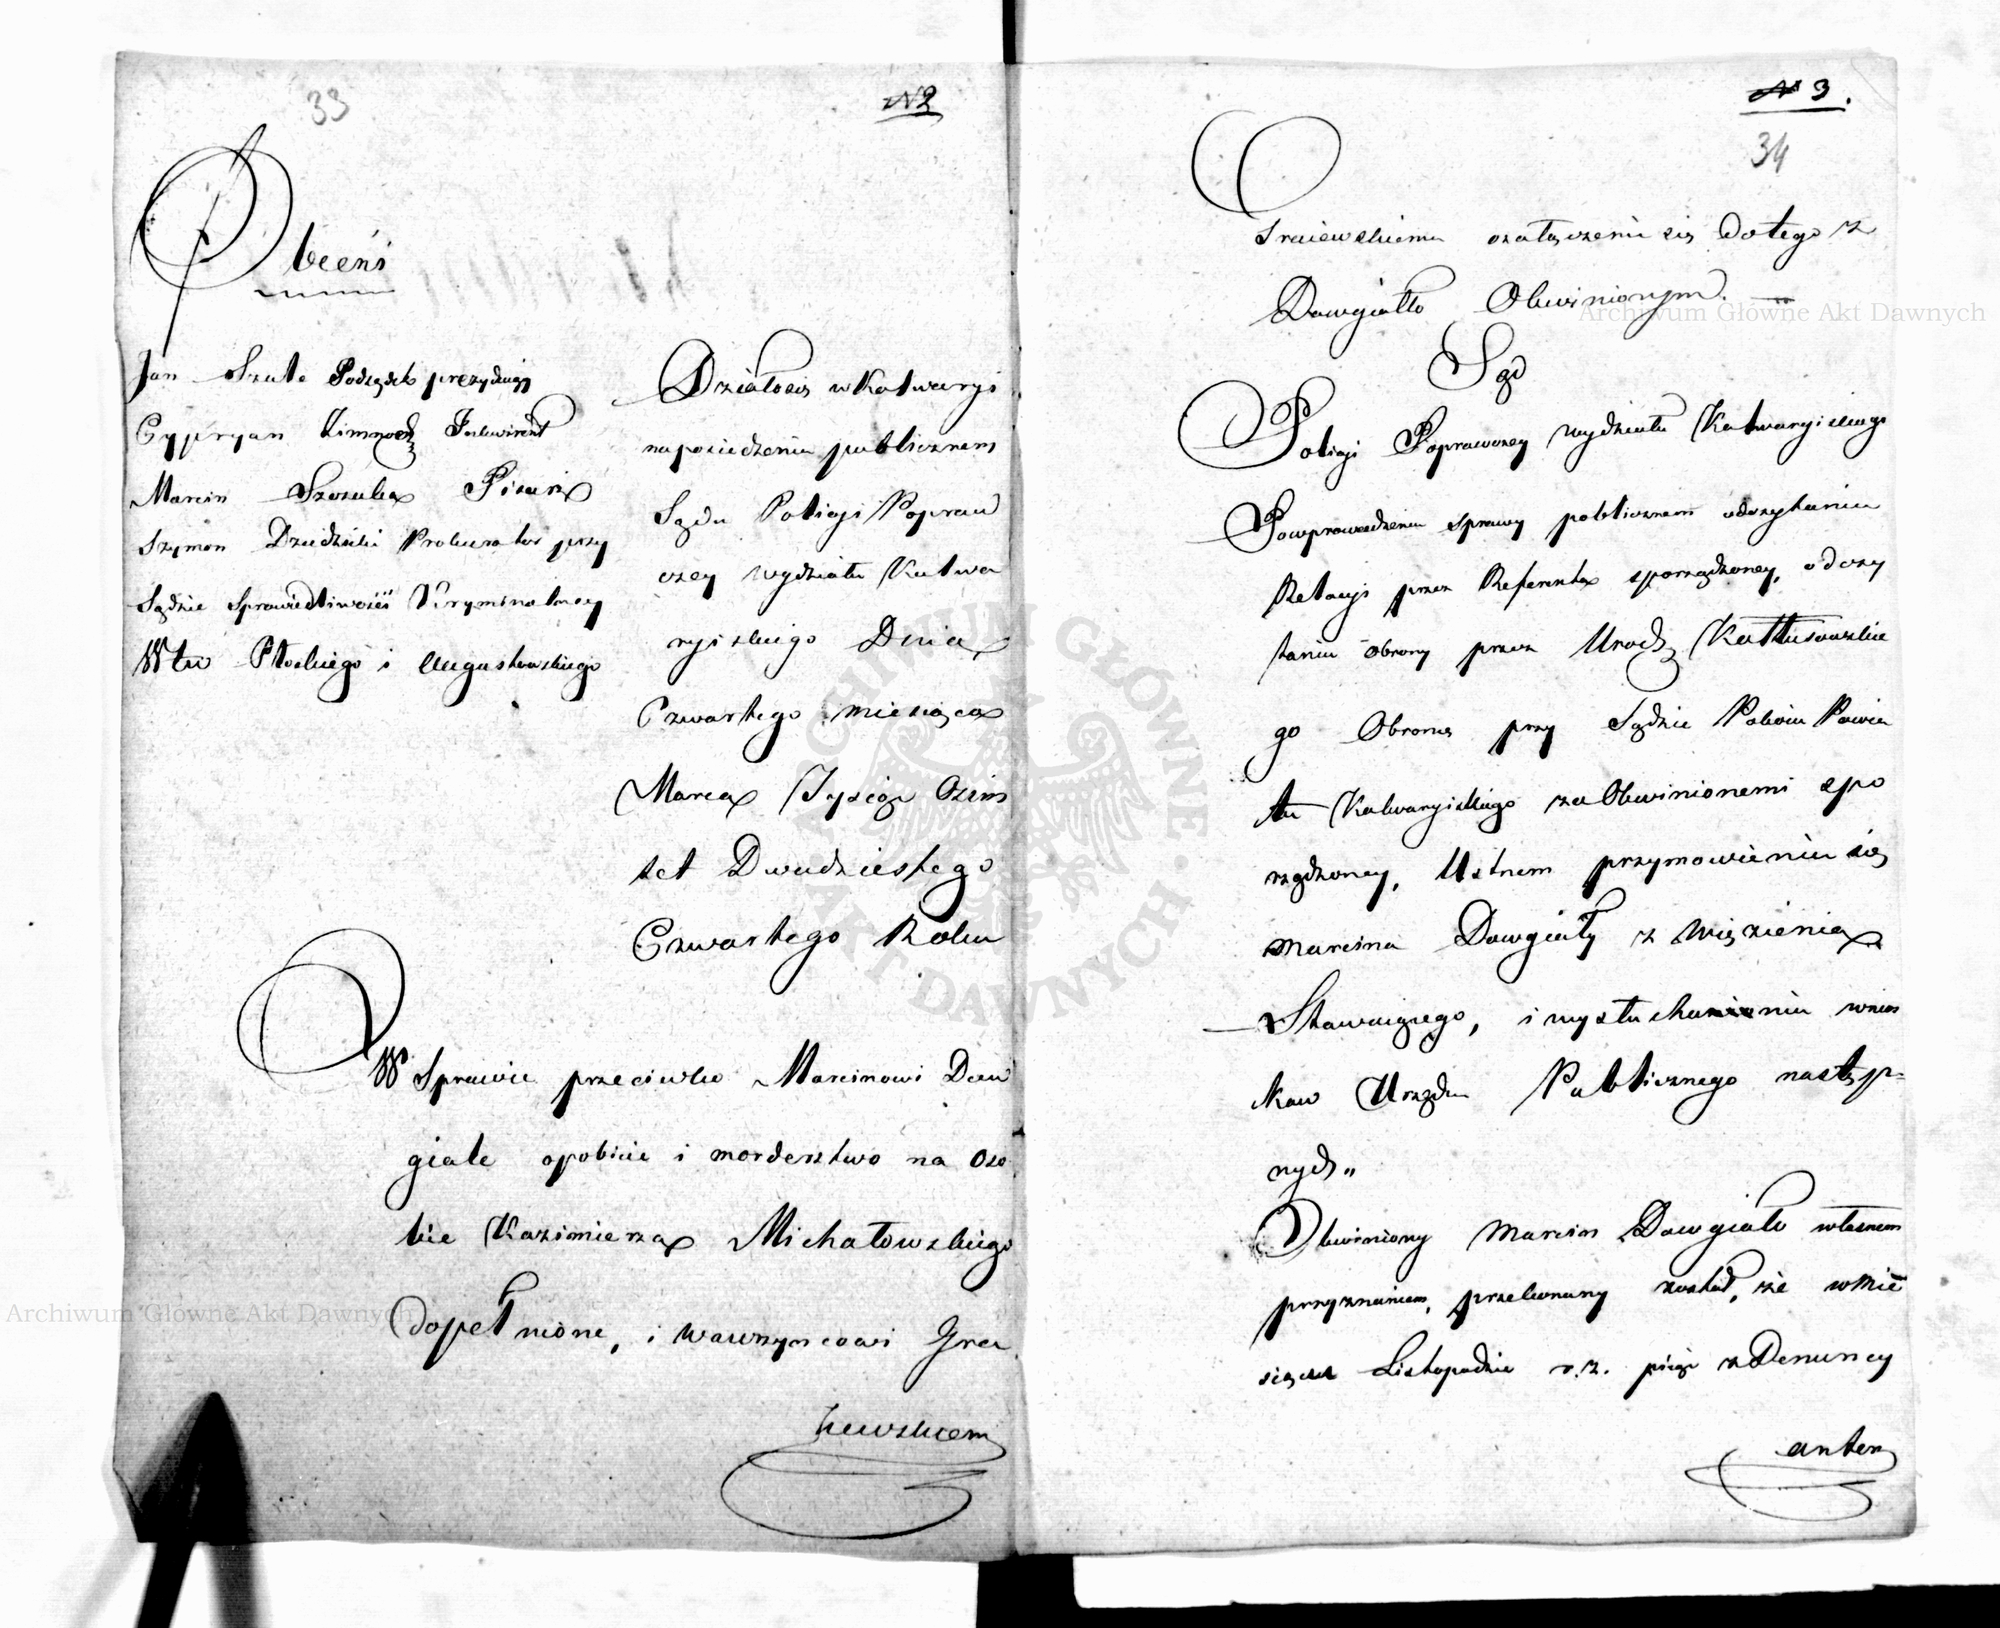 33
N 2
Obecni
Jan Szule Podsędek prezydując
Cypryan Zimnoch Inkwirent
Marcin Szczuka Pisarz
Szymon Dzudzicki Prokurator przy
Sądzie Sprawiedliwości Kryminalney
Wtw Płockiego i Augustowskiego
Działosie w Kalwaryi
na posiedzeniu publicznem
Sądu Policyi Popraw
czey wydziału Kalwa
ryiskiego Dnia
Czwartego miesiąca
Marca Tysiąc Osim
set Dwudziestego
Czwartego Roku
W Sprawie przeciwko Marcinowi Daw
giale o pobicie i morderstwo na Oso
bie Kazimierza Michałowskiego
dopełnione, i Wawrzyncowi Gra
jewskiem
N 3.
34
Grajewskiemu o załączenie się do tego z
Dawgiałło Obwinionym.
Sąd
Policyi Poprawczey wydziału Kalwaryiskiego
Po wprowadzeniu sprawy publicznem odczytaniu
Relacyi przez Referenta sporządzoney, odczy
taniu obrony przez Urodz Kattusowskie
go Obrońcę przy Sądzie Pokoiu Powia
tu Kalwaryiskiego za Obwinionemi spo
rządzoney, Ustnem przymowieniu się
Marcina Dawgiałły z więzienia
Stawaiącego, i wysłuchaniu wnios
kow Urzędu Publicznego następ=
nych„
Obwiniony Marcin Dawgiało własnem
przyznaniem, przekonany został, że w Mie
siącu Listopadzie r. z. piiąc z Denuncy
antem
Archiwum Główne Akt Dawnych
Archiwum Główne Akt Dawnych
ARCHIWUM GŁÓWNE AKT DAWNYCH